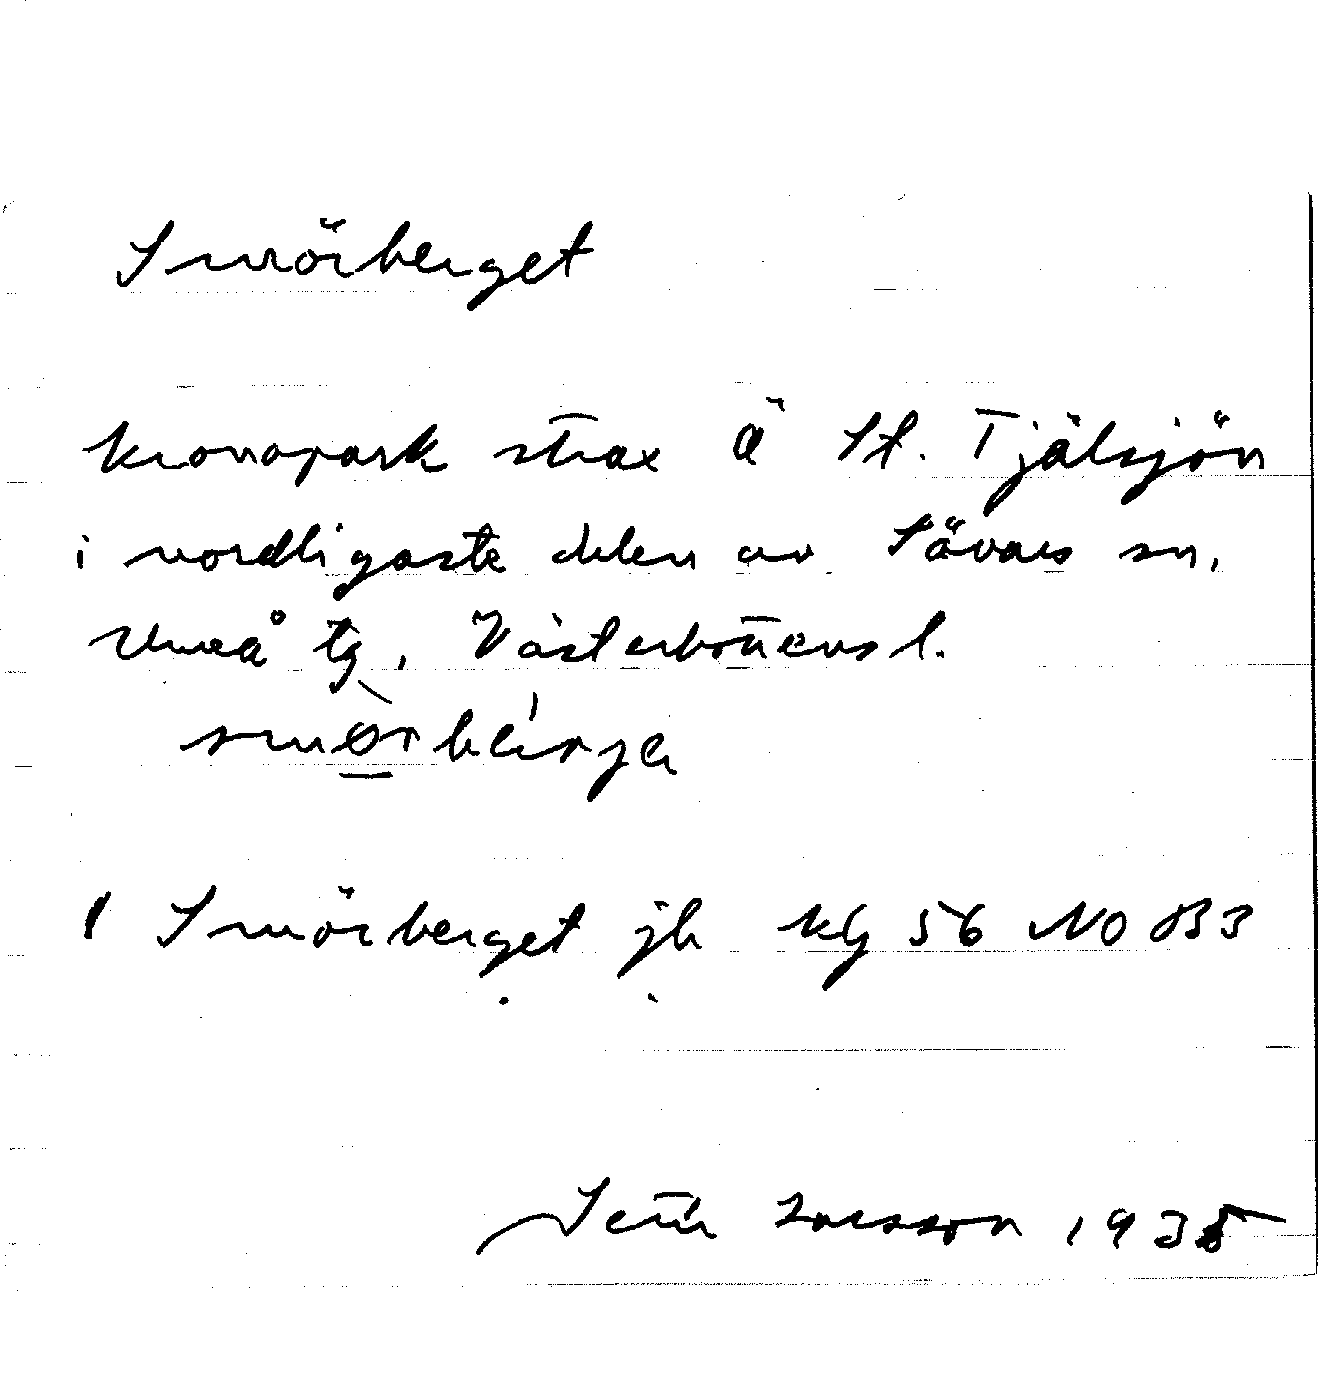 Smörberget
kronopark strax Ö St. Tjälsjön
i nordligaste delen av Sävars sn,
Umeå tg, Västerbottens l.
Smörberget jb kg 56 NO B3
Larsson 1935